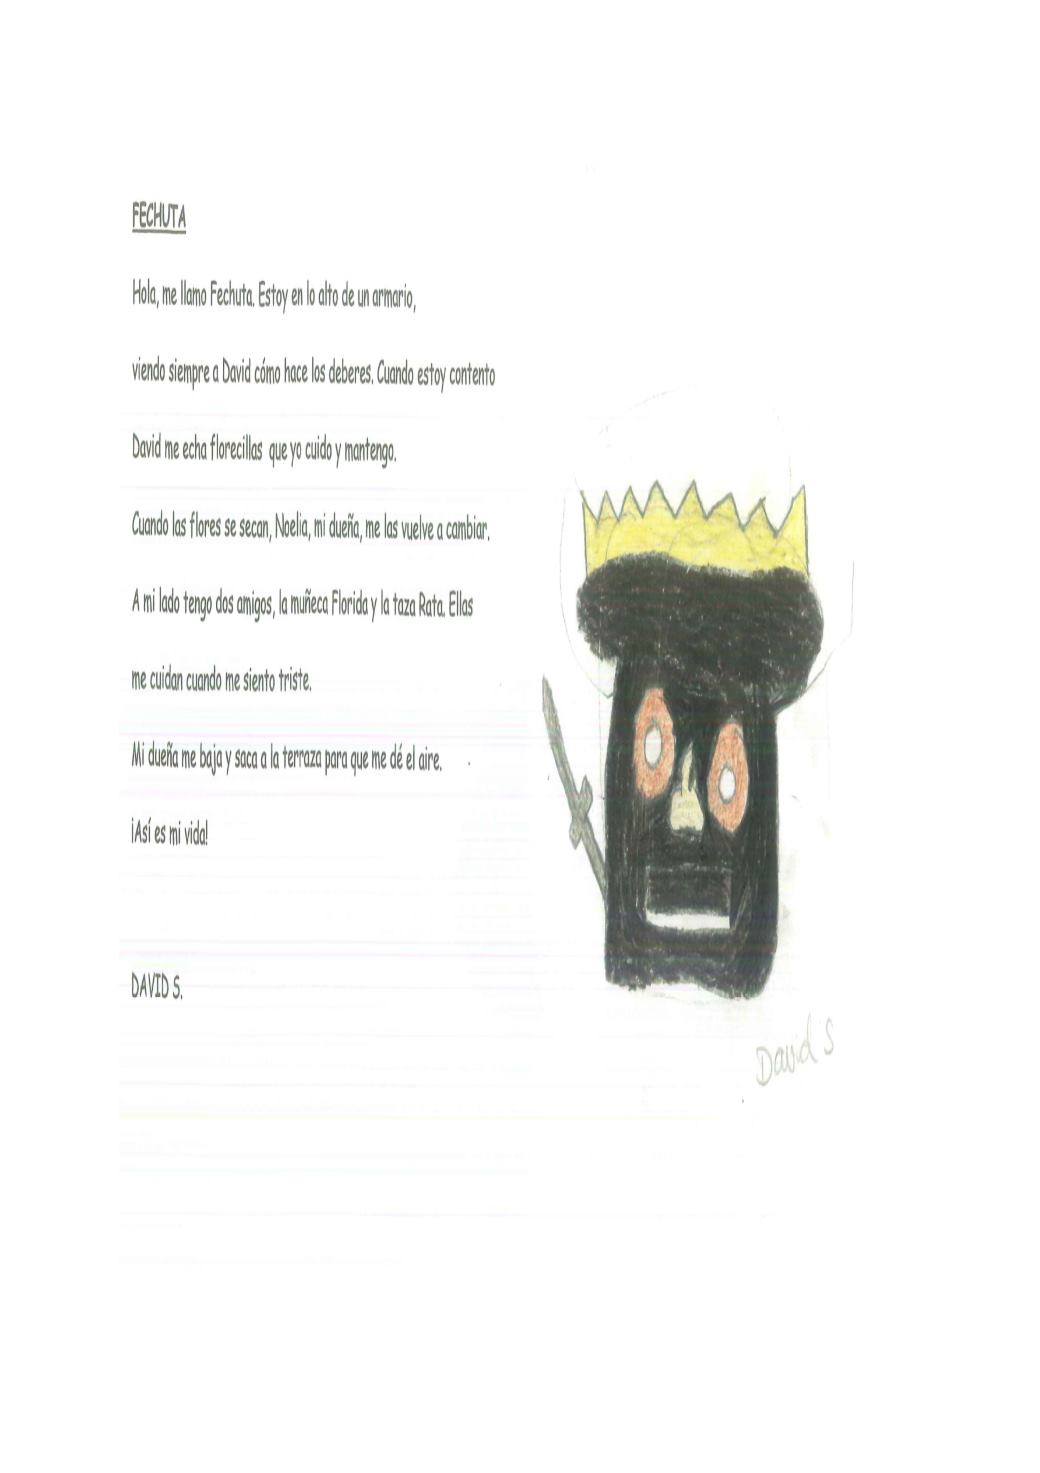 FECHUTA
Hola, me llamo Fechuta. Estoy en lo alto de un armario,
viendo siempre a David cómo hace los deberes. Cuando estoy contento
David me echa florecillas que yo cuido y mantengo.
Cuando las flores se secan, Noelia, mi dueña, me las vuelve a cambiar.
A mi lado tengo dos amigos, la muñeca Florida y la taza Rata. Ellas
me cuidan cuando me siento triste.
Mi dueña me baja y saca a la terraza para que me dé el aire.
¡Así es mi vida!
DAVID S.
David S